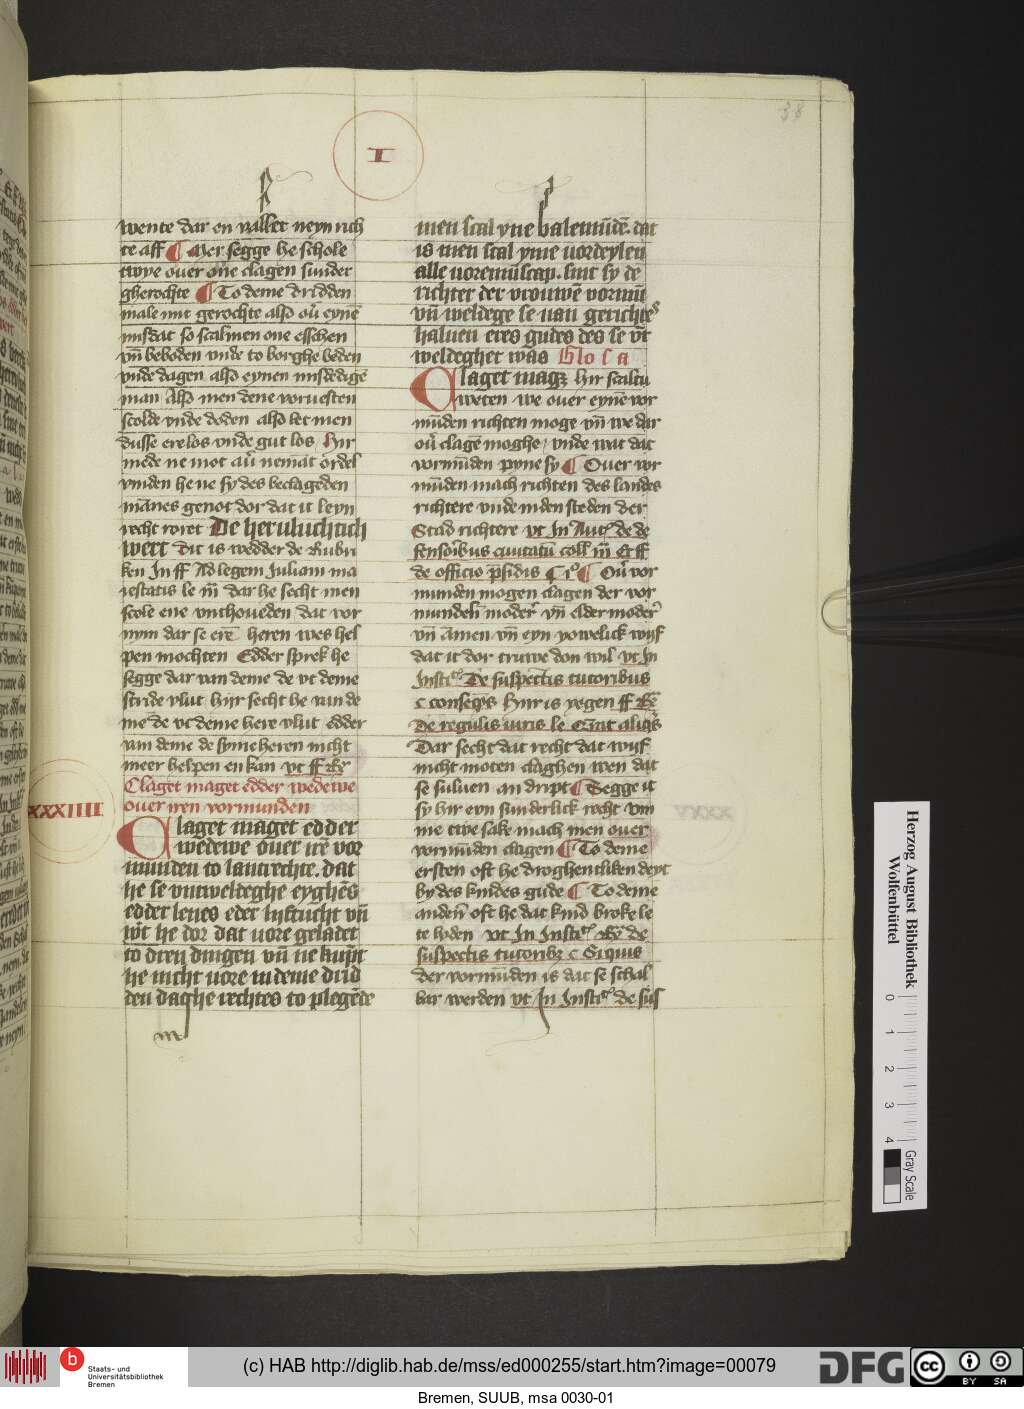 38
I
wente dar en vallet neyn rich
te aff ¶ Mer segge he schole
twye ouer one clagen sunder
gherochte ¶ To deme dridden
male mit gerochte also ou eyne
misdat so scalmen one esschen
vn beboden vnde to borghe beden
vnde dagen also eynen misdedige
man Also men dene voruesten
scolde vnde doden also let men
dusse erelos vnde gut los Hir
mede ne mot au nemat ordel
vinden he ne sy des beclageden
manes genot dor dat it leyn
recht roret De heruluchtich
wert Dit is wedder de Rubri
ken In ff Ad legem Iuliam ma
iestatis le iii dar he secht men
scole ene vnthoueden dat vor
nym dar se ere heren wes hel
pen mochten Edder sprek he
segge dar van deme de vt deme
stride vlut hyr secht he van de
me de vt deme here vlut edder
van deme de syme heren nicht
meer helpen en kan vt ff Re
Claget maget edder wedewe
ouer iren vormunden
XXXIIII
Claget maget edder
wedewe ouer ire vor
munden to lantrechte. dat
he se vntweldeghe eyghes
edder lenes eder liftucht vn
wert he dor dat vore geladet
to dren dingen vn ne kumpt
he nicht vore in deme drid
den daghe rechtes to plegede
men scal yne balemude. dat
is men scal yme vordeylen
alle voremuscap. sint sy de
richter der vrouwe vormu
vn weldege se van gerichtes
haluen eres gudes des se vt
weldeghet was Glosa
Claget maget Hir scaltu
weten we ouer eyne vor
muden richten moge vn we dar
ou clage moghe vnde wat dat
vormuden pyne sy ¶ Ouer vor
muden mach richten des landes
richtere vnde inden steden der
Stad richtere vt In Auct de de
fensoribus ciuitatu coll iii Et ff
de officio psidis ¶ Ou vor
munden mogen clagen der vor
munden moder vn elder moder
vn Amen vn eyn yowelick wyf
dat it dor truwe don wil vt In
Insti De suspectis tutoribus
c conseqs Hyr is yegen ff Re
De regulis iuris le
Dar secht dat recht dat wyf
nicht moten claghen wen dat
se suluen an dript ¶ Segge it
sy hir eyn sunderlick recht vm
me twe sake mach men ouer
vormuden clagen ¶ To deme
ersten oft he droghentliken deyt
by des kindes gude ¶ To deme
anden oft he dat kind broke le
te lyden vt In Insti Re de
suspectis tutoribus c Siquis
der vormuden is dat se schal
bar werden vt In Insti de sus
Herzog August Bibliothek
Wolfenbüttel
0 1 2 3 4
Gray Scale
Staats- und
Universitätsbibliothek
Bremen
(c) HAB http://diglib.hab.de/mss/ed000255/start.htm?image=00079
DFG
cc BY SA
Bremen, SUUB, msa 0030-01